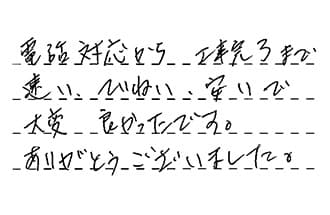 電話対応から 工事完了まで
速い、ていねい、安いで
大変 良かったです。
ありがとうございました。